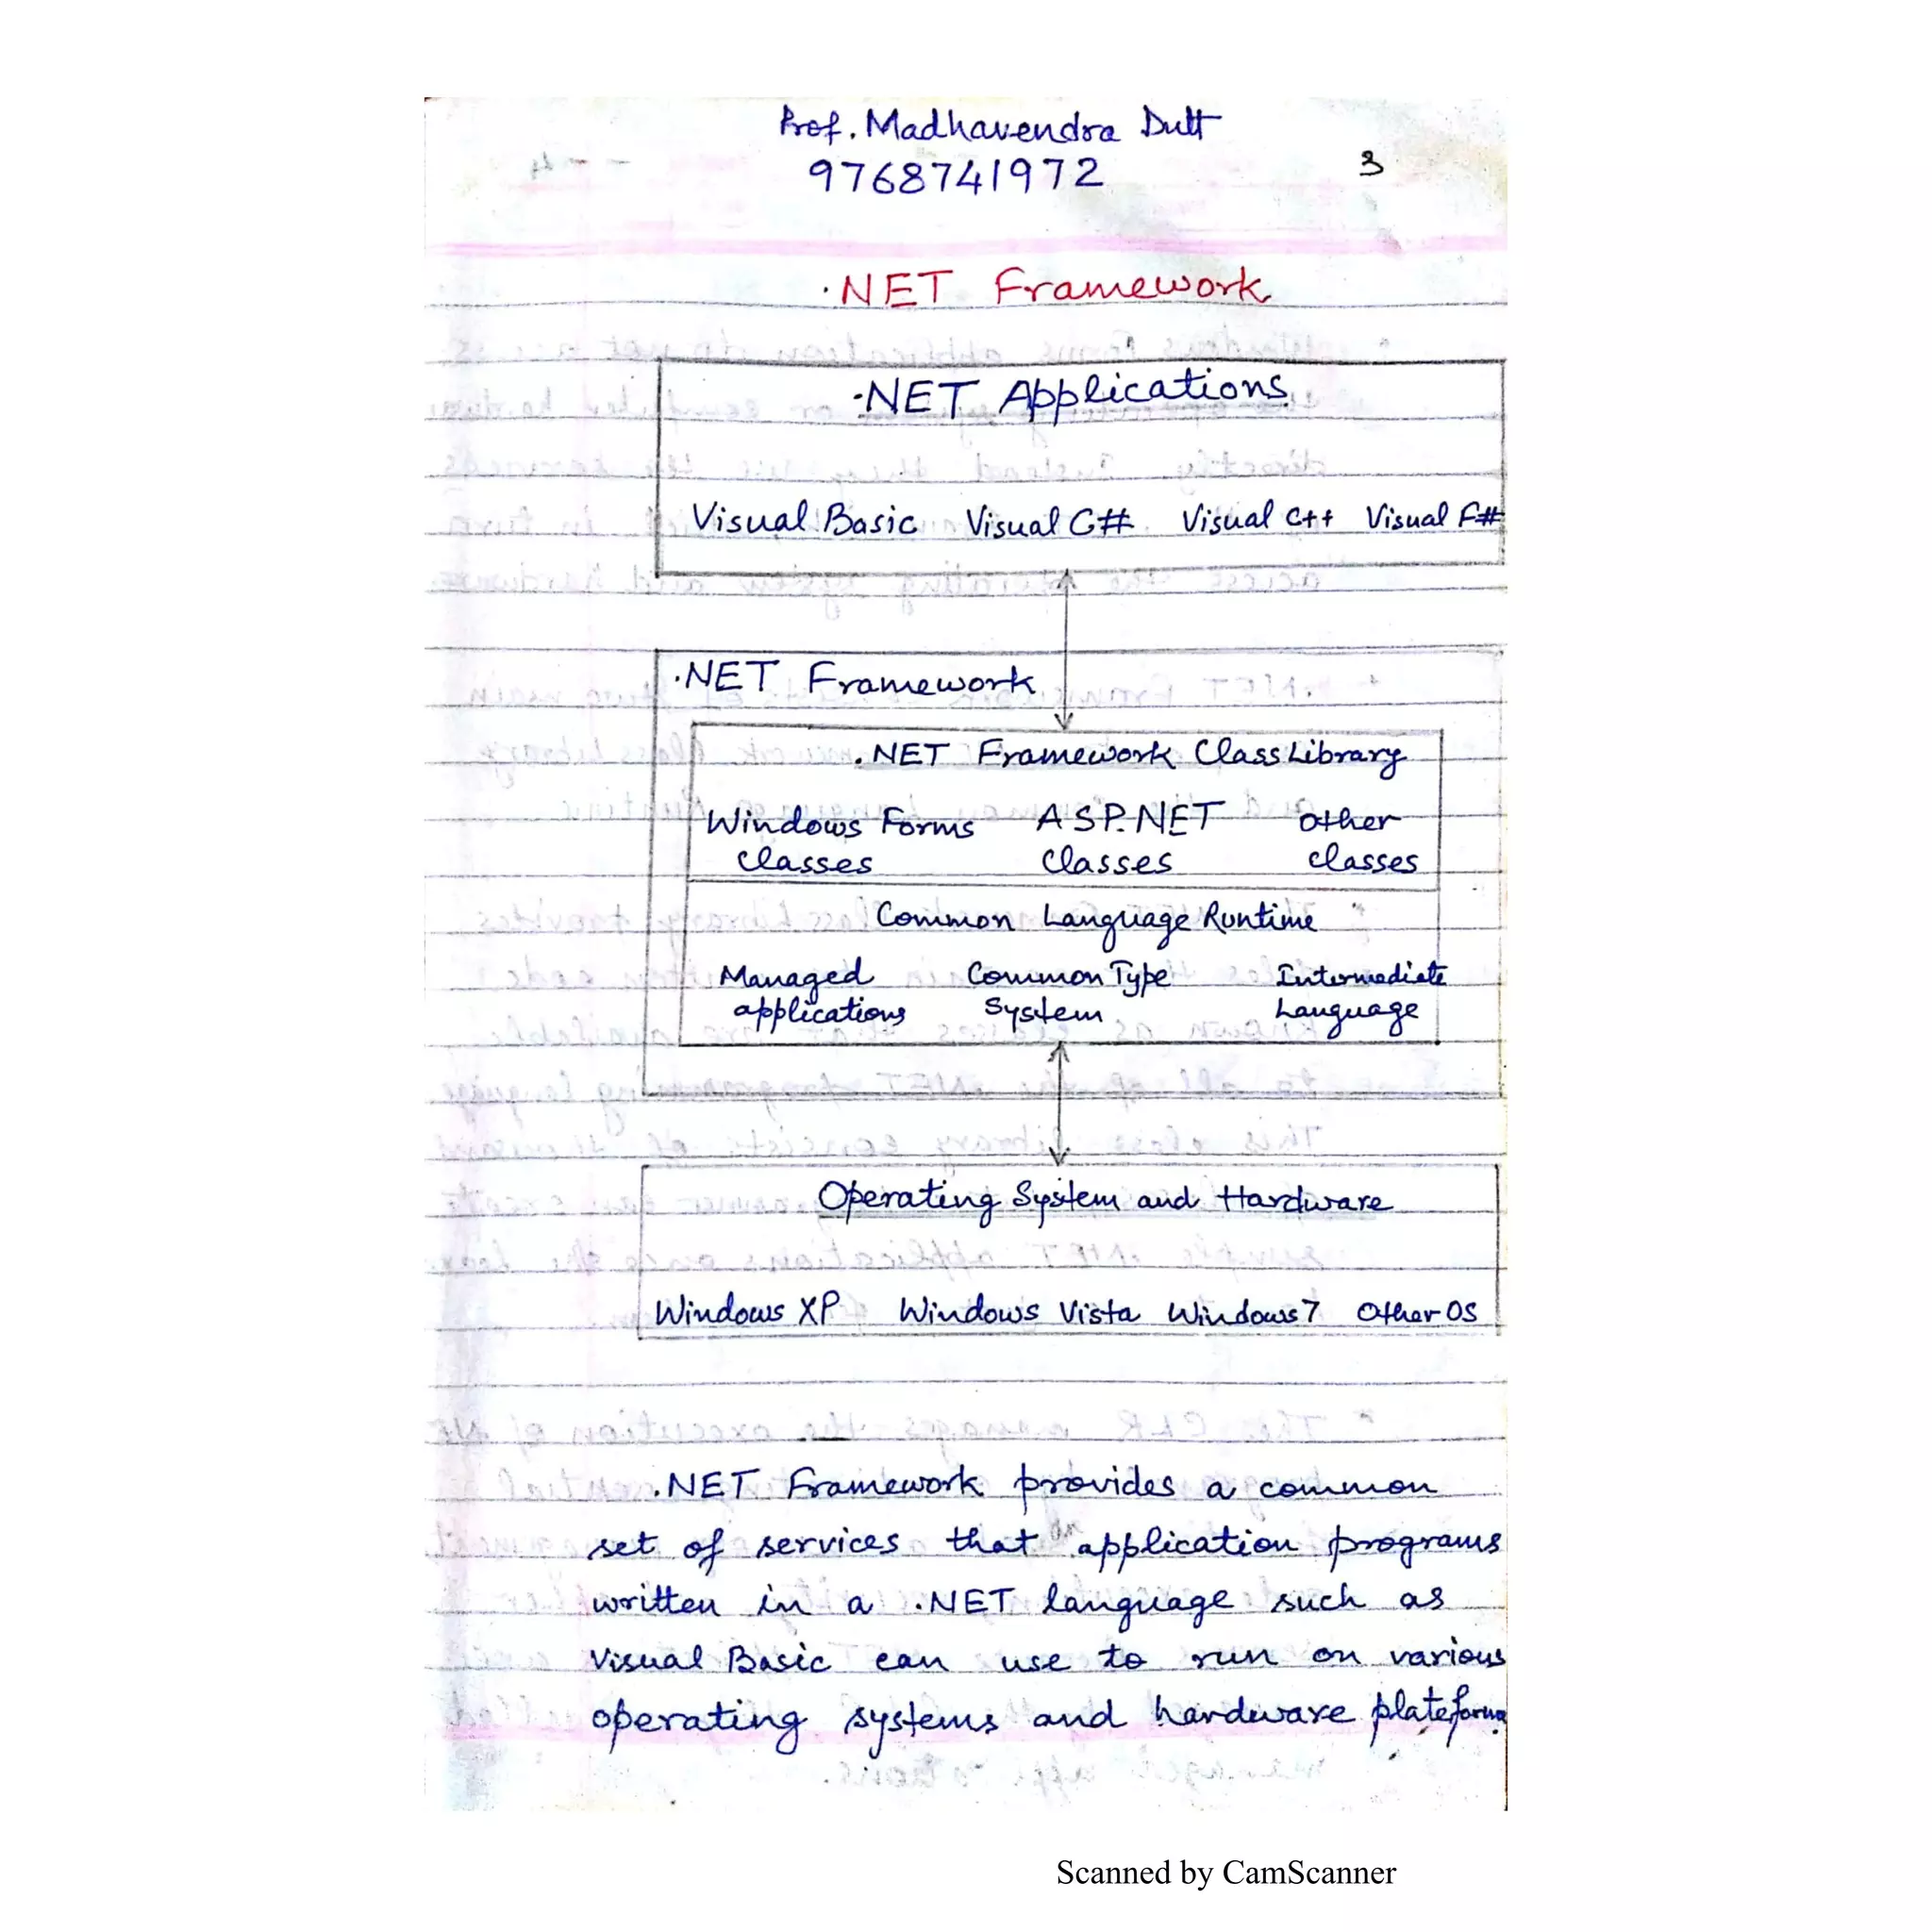 Prof. Madhavendra Dutt
9768741972
3
.NET Framework
.NET Applications
Visual Basic Visual C# Visual C++ Visual F#
.NET Framework
.NET Framework Class Library
Windows Forms ASP.NET other
classes classes classes
Common Language Runtime
Managed Common Type Intermediate
applications System Language
Operating System and Hardware
Windows XP Windows Vista Windows 7 Other OS
.NET Framework provides a common
set of services that application programs
written in a .NET language such as
Visual Basic can use to run on various
operating systems and hardware plateforms
Scanned by CamScanner